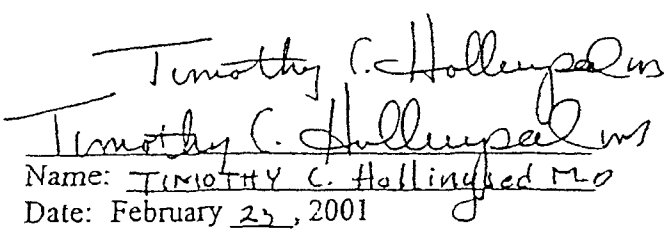 Timothy C. Hollingsed MD
Timothy C. Hollingsed MD
Name: TIMOTHY C. Hollingsed M.D
Date: February 23, 2001